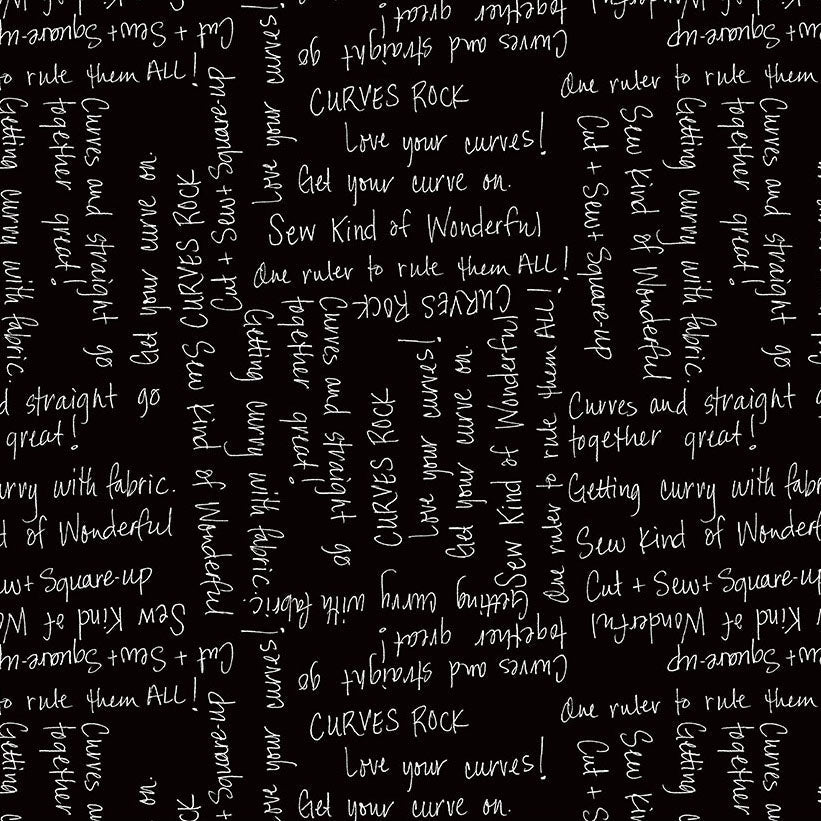 Sew Kind of Wonderful
Cut + Sew + Square-up
One ruler to rule them ALL!
Curves and straight go
together great!
CURVES ROCK
Love your curves!
Get your curve on.
Sew Kind of Wonderful
One ruler to rule them ALL!
CURVES ROCK
Love your curves!
Cut + Sew + Square-up
CURVES ROCK
Get your curve on.
Curves and straight go
together great!
Getting curvy with fabric.
Sew Kind of Wonderful
Getting curvy with fabric.
Curves and straight go
together great!
CURVES ROCK
Love your curves!
Get your curve on.
Sew Kind of Wonderful
One ruler to rule them ALL!
Cut + Sew + Square-up
Sew Kind of Wonderful
Getting curvy with fabric.
Curves and straight go
together great!
Curves and straight go
together great!
Getting curvy with fabric.
Sew Kind of Wonderful
Cut + Sew + Square-up
Sew Kind of Wonderful
Getting curvy with fabric.
Curves and straight go
together great!
Cut + Sew + Square-up
One ruler to rule them
CURVES ROCK
Love your curves!
Get your curve on.